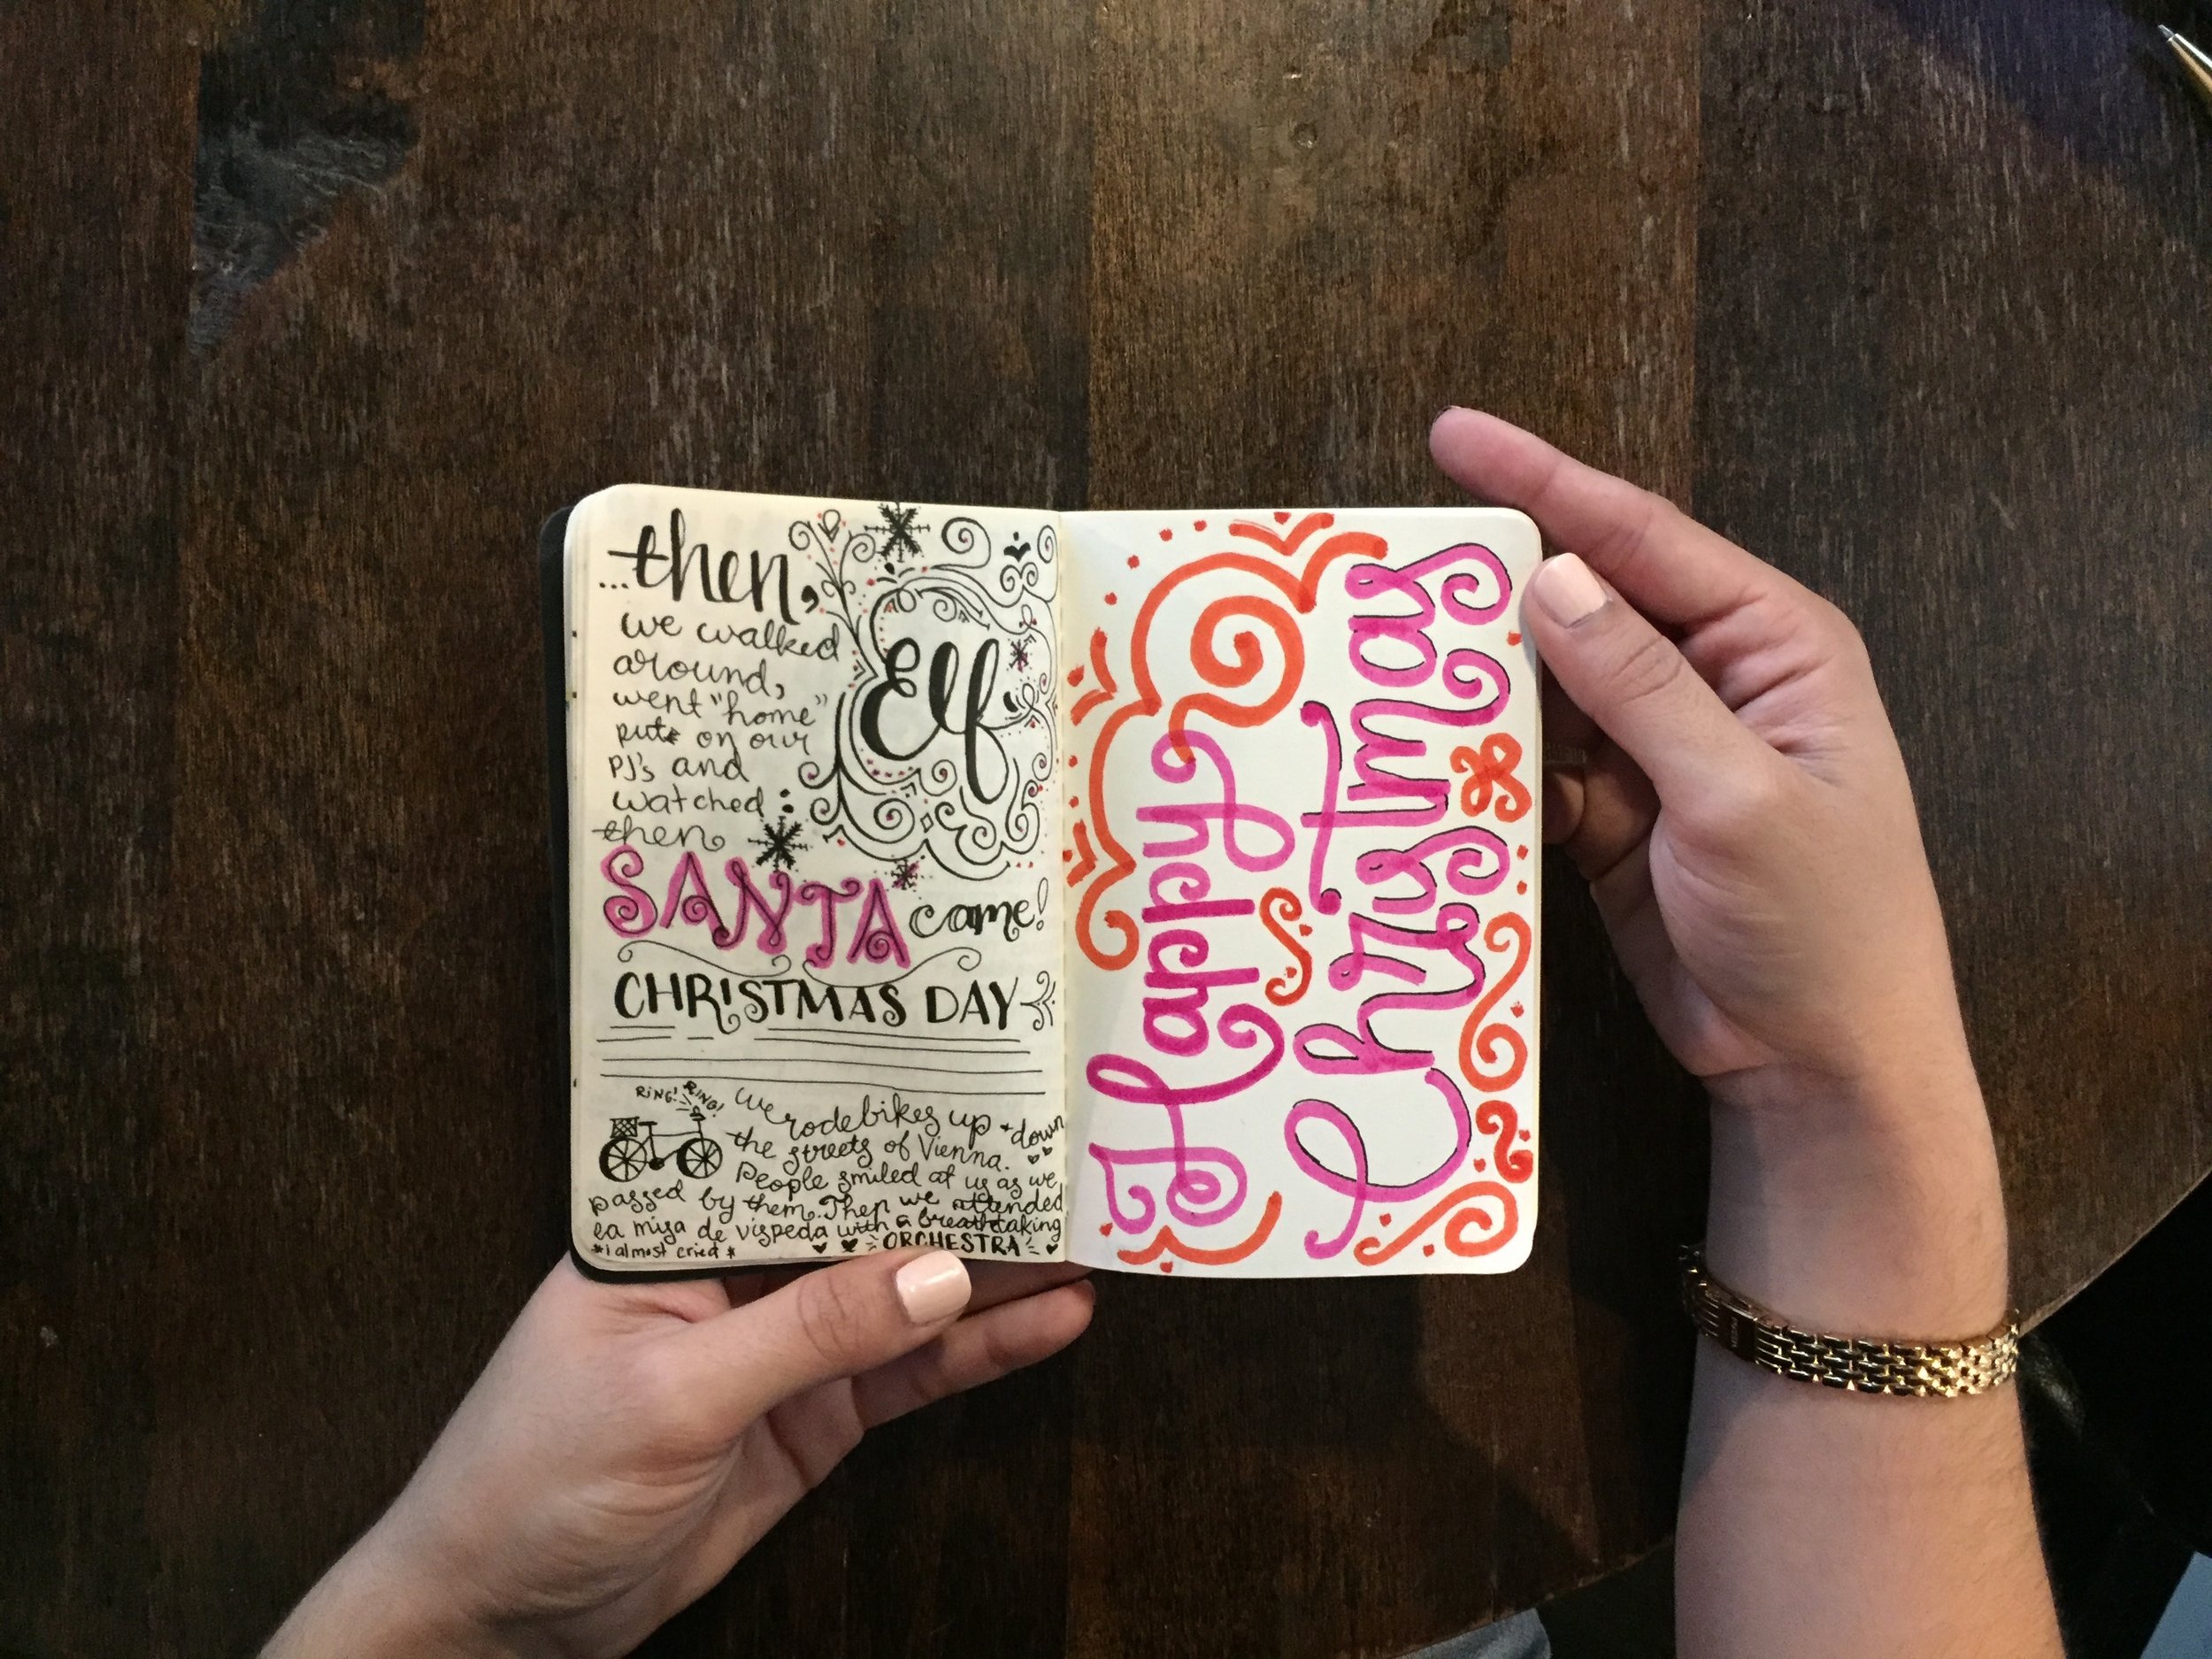 ...then,
we walked
around,
went "home"
put on our
PJ's and
watched :
Elf
then
SANTA came!
CHRISTMAS DAY
RING! RING!
we rode bikes up + down
the streets of Vienna.
People smiled at us as we
passed by them. Then we attended
la misa de vispeda with a breathtaking
*i almost cried* ORCHESTRA
Happy
Christmas